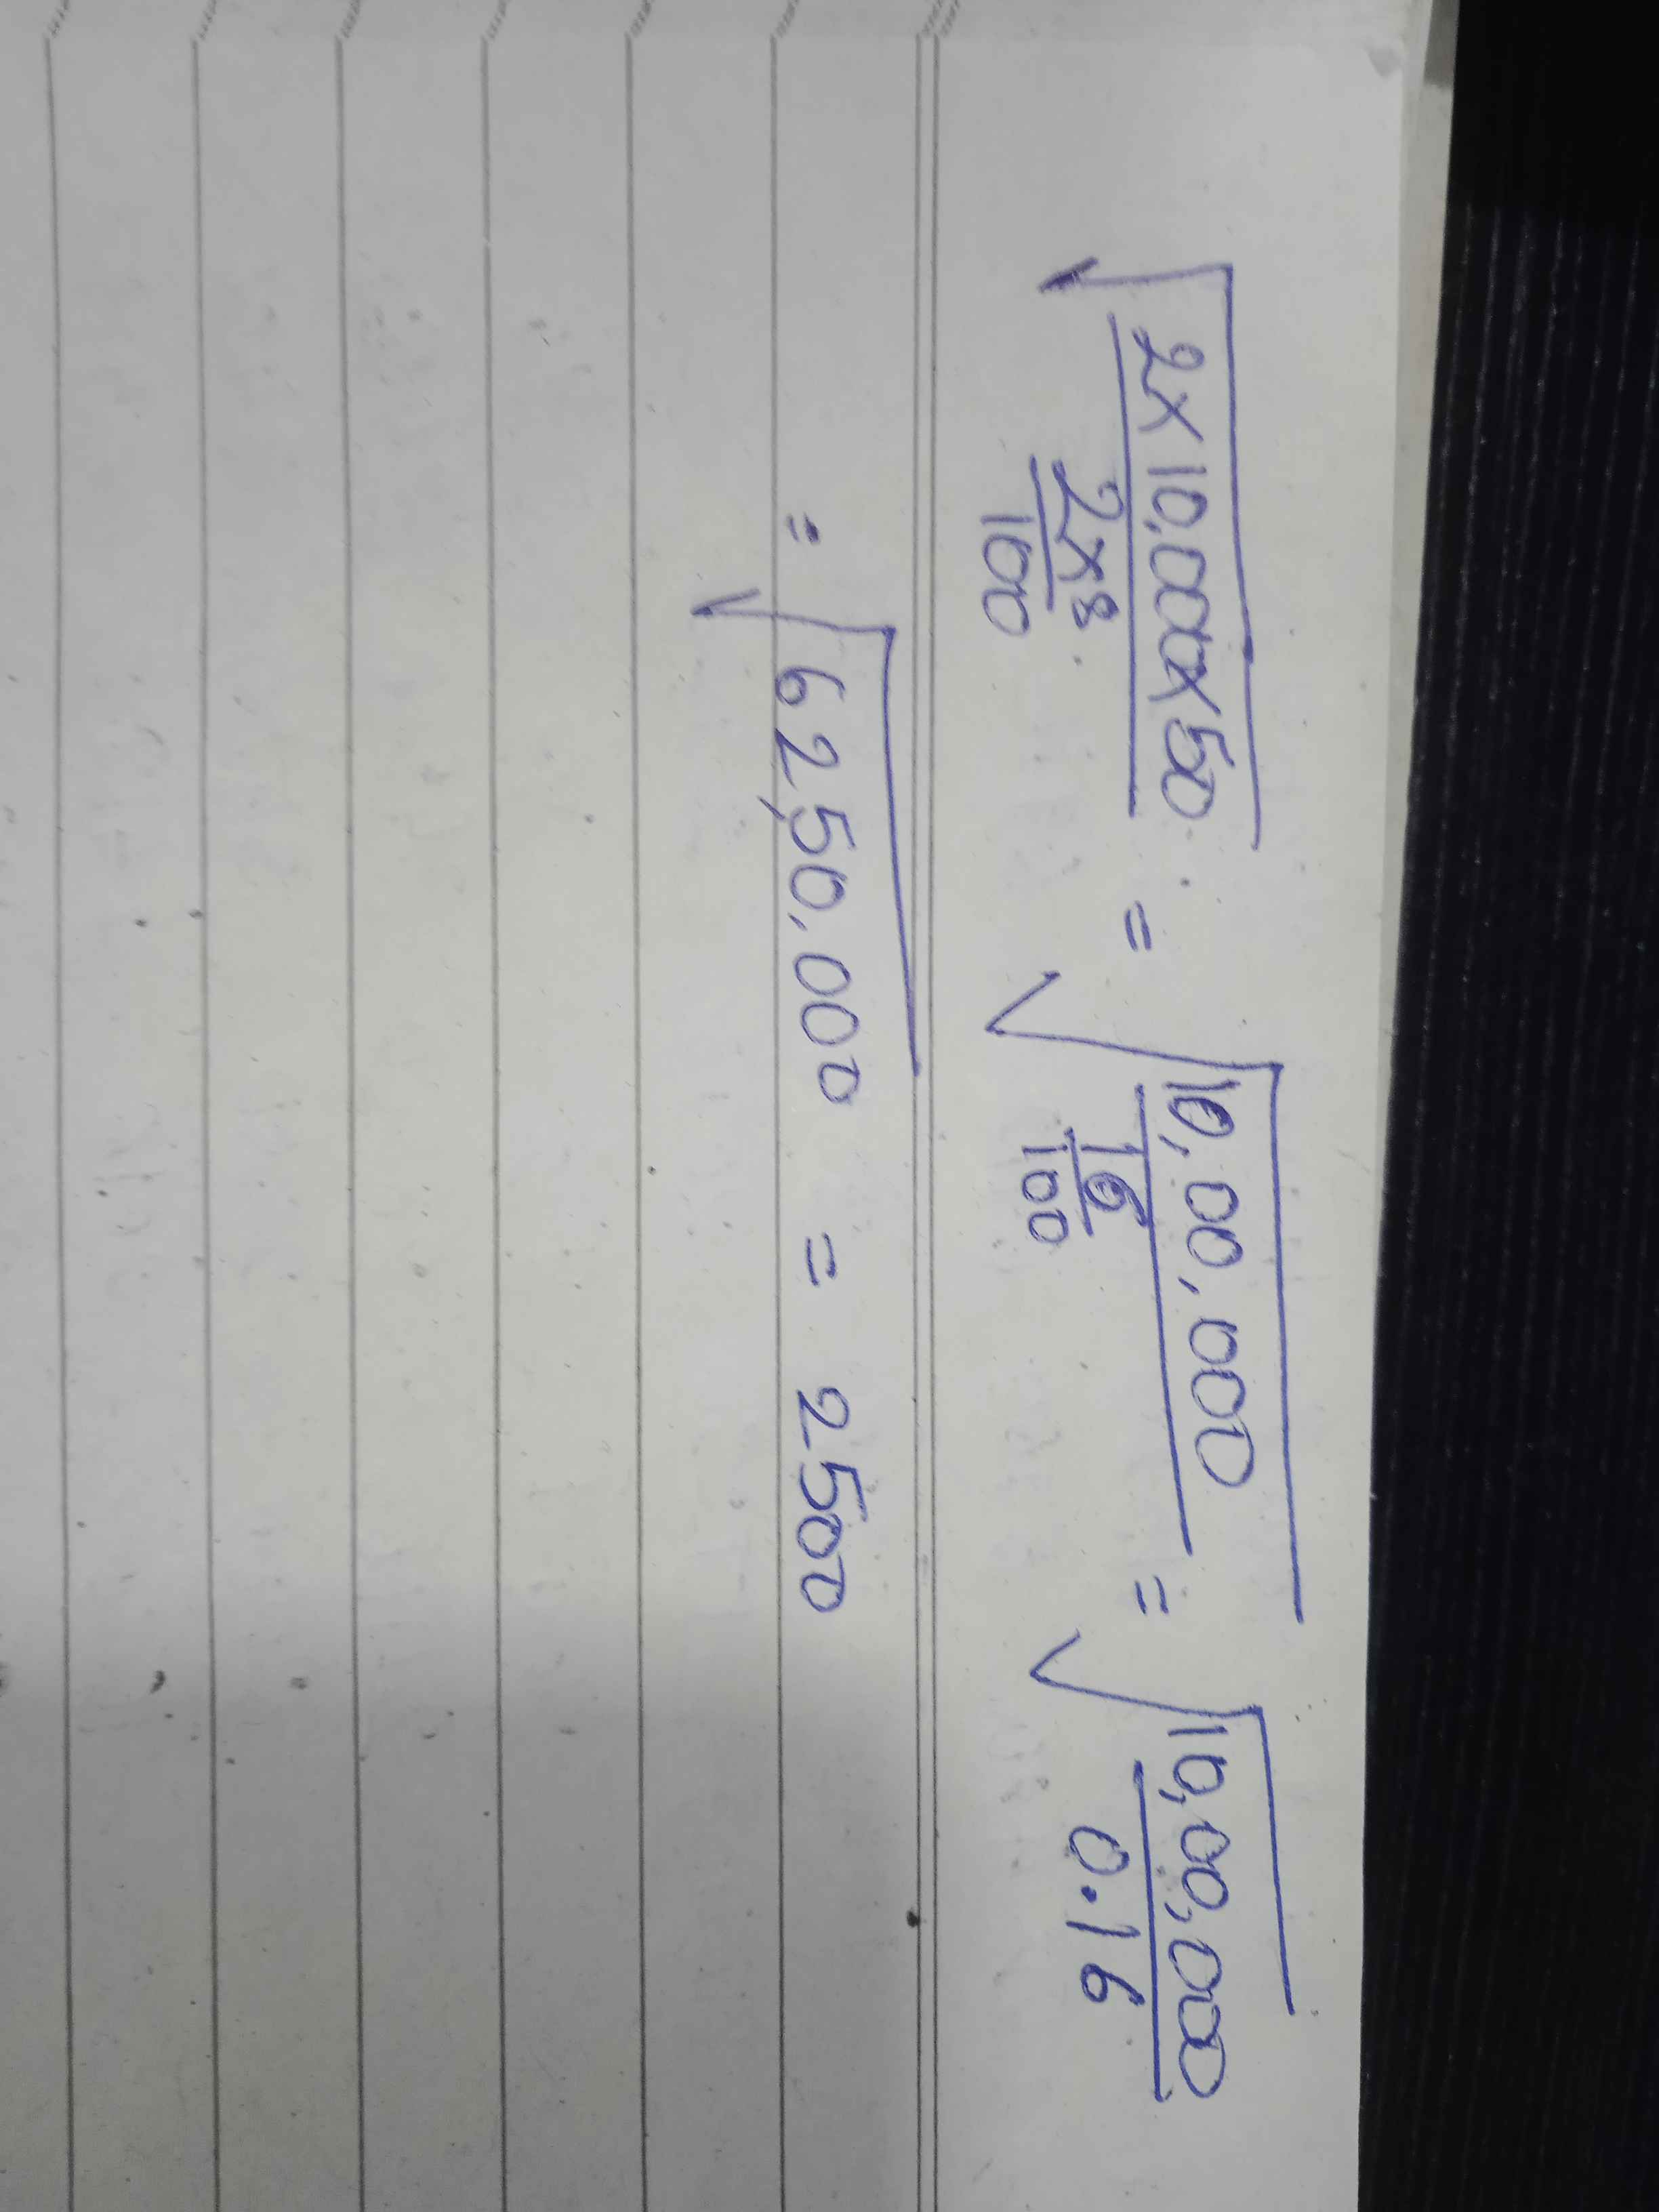 √(2×10,000×50 / (2×8/100)) = √(10,00,000 / (16/100)) = √(10,00,000 / 0.16)
= √62,50,000 = 2500